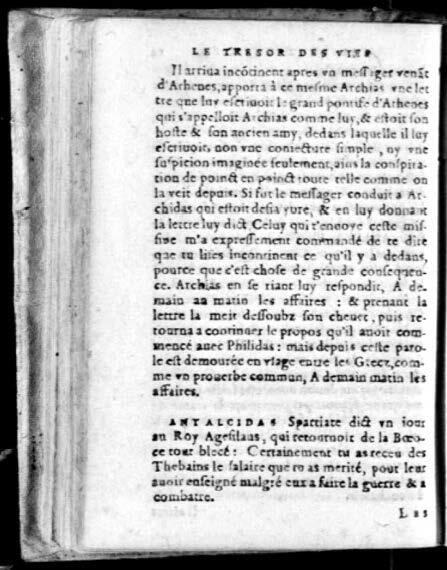 LE TRESOR DES VIES
Il arriua incōtinent apres vn messager venāt
d'Athenes, apporta à ce mesme Archias vne let
tre que luy escriuoit le grand pontife d'Athenes
qui s'appelloit Archias comme luy, & estoit son
hoste & son ancien amy, dedans laquelle il luy
escriuoit, non vne coniecture simple, ny vne
suspicion imaginee seulement, ains la conspira-
tion de poinct en poinct toute telle comme on
la veit depuis. Si fut le messager conduit a Ar-
chidas qui estoit desia yure, & en luy donnant
la lettre luy dict Celuy qui t'enuoye ceste mis-
siue m'a expressement commādé de te dire
que tu lises incontinent ce qu'il y a dedans,
pource que c'est chose de grande consequen-
ce. Archias en se riant luy respondit, A de-
main au matin les affaires : & prenant la
lettre la meit dessoubz son cheuet, puis re-
tourna a continuer le propos qu'il auoit com-
mencé auec Philidas : mais depuis ceste paro-
le est demourée en vsage entre les Grecz, com-
me vn prouerbe commun, A demain matin les
affaires.
ANTALCIDAS Spartiate dict vn iour
au Roy Agesilaus, qui retournoit de la Bœo-
ce tout blecé : Certainement tu as receu des
Thebains le salaire que tu as merité, pour leur
auoir enseigné malgré eux a faire la guerre & a
combatre.